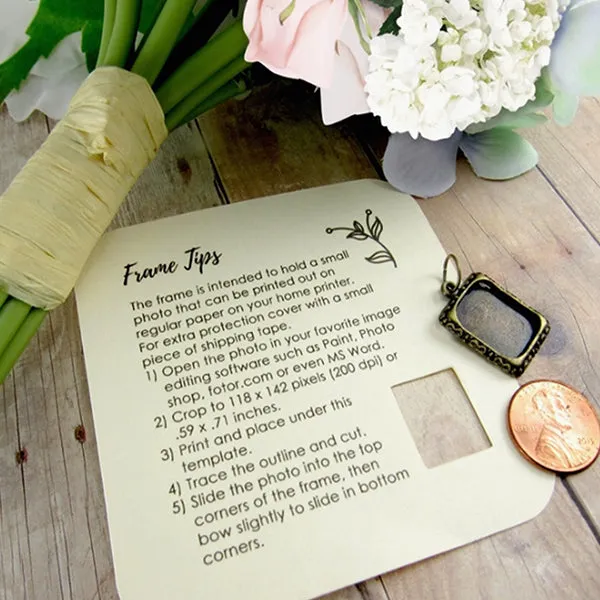 Frame Tips
The frame is intended to hold a small
photo that can be printed out on
regular paper on your home printer.
For extra protection cover with a small
piece of shipping tape.
1) Open the photo in your favorite image
editing software such as Paint, Photo
shop, fotor.com or even MS Word.
2) Crop to 118 x 142 pixels (200 dpi) or
.59 x .71 inches.
3) Print and place under this
template.
4) Trace the outline and cut.
5) Slide the photo into the top
corners of the frame, then
bow slightly to slide in bottom
corners.